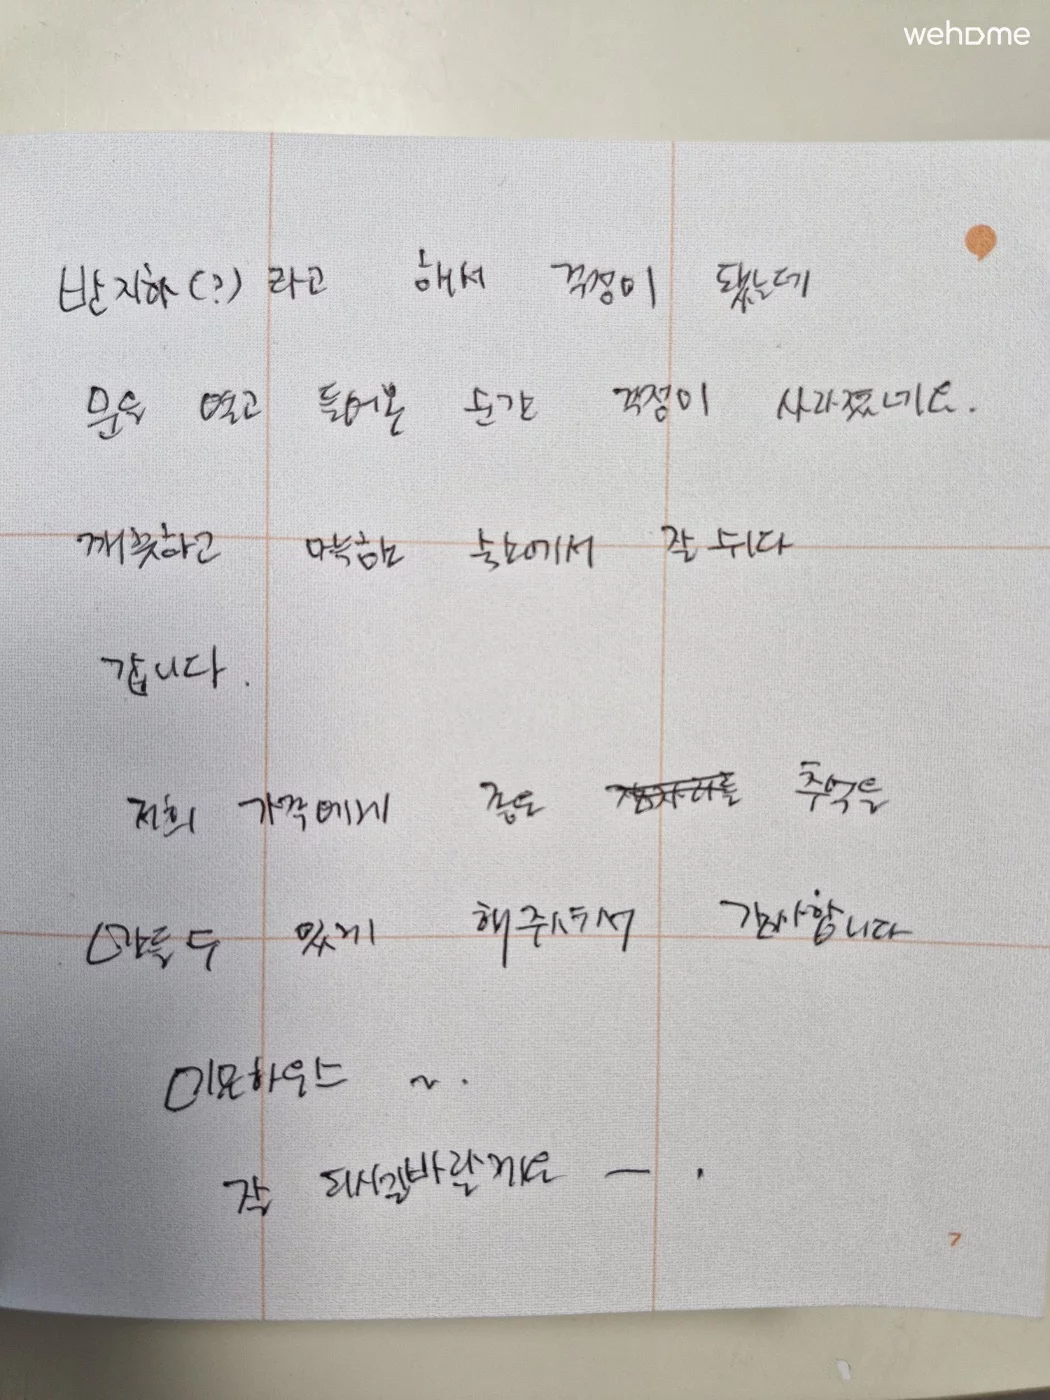 wehome
반지하(?)라고 해서 걱정이 됐는데
문을 열고 들어온 순간 걱정이 사라졌네요.
깨끗하고 아늑한 숙소에서 잘 쉬다
갑니다.
저희 가족에게 좋은 추억을
만들 수 있게 해주셔서 감사합니다
미모하우스 ~.
잘 되시길바랄게요 ㅡ.
7